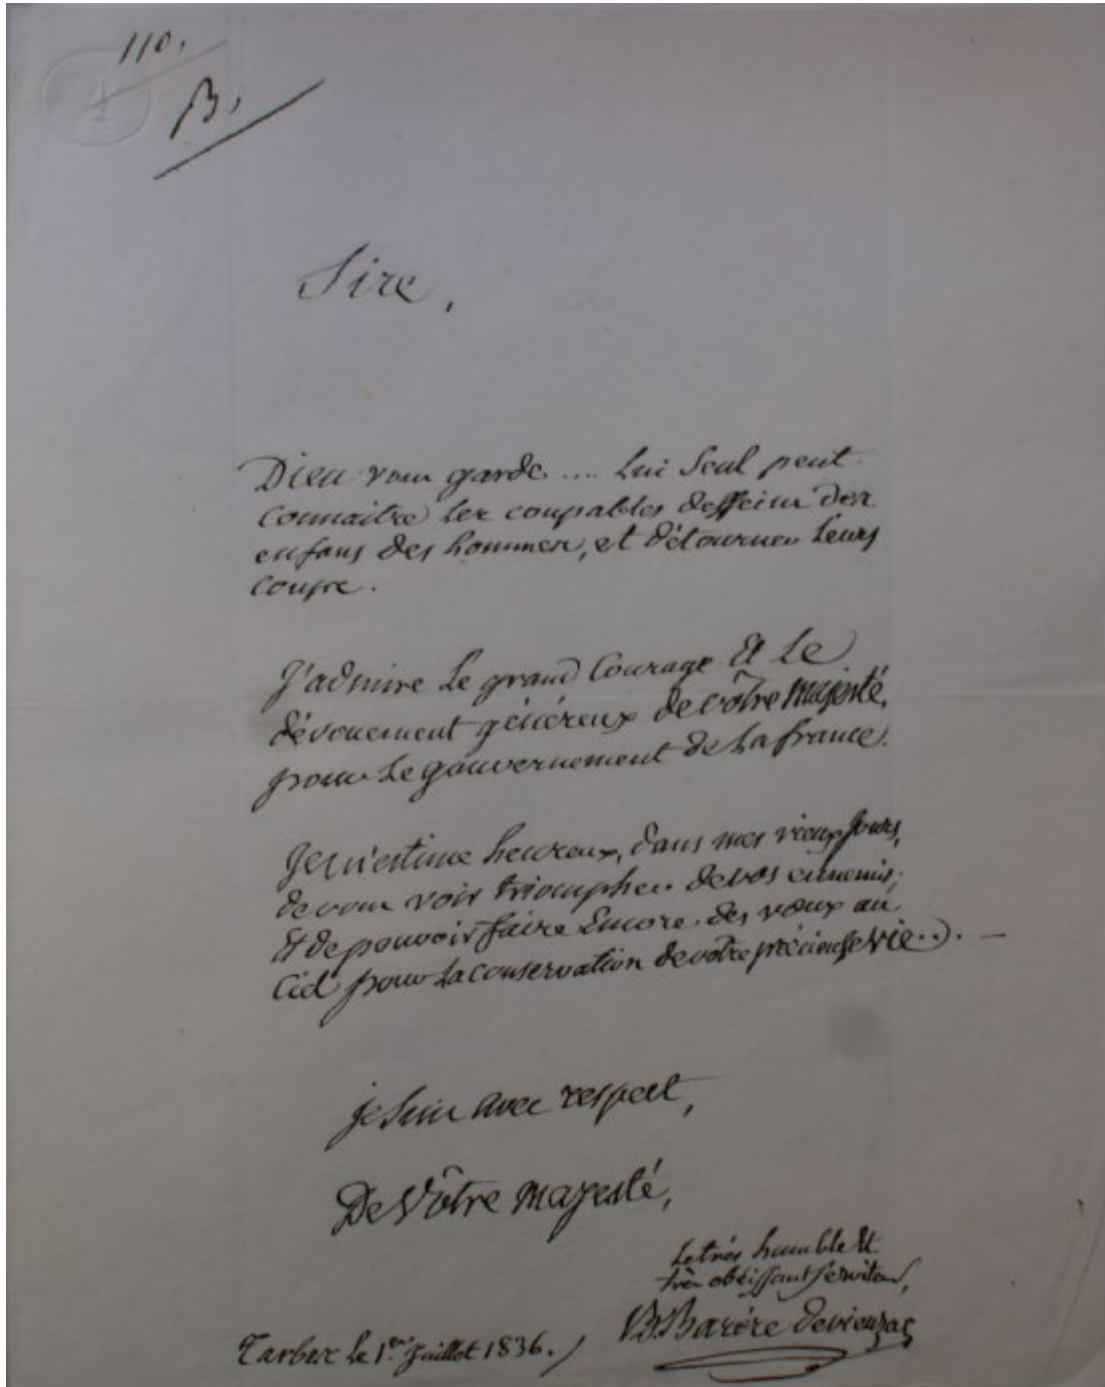 110.
B.
Sire,
Dieu vous garde .... lui Seul peut
connaitre les coupables desseins des
enfans des hommes, et détourner leurs
coups.
J'admire le grand Courage Et le
dévouement généreux de vôtre Majesté,
pour le gouvernement de la france.
Je m'estime heureux, dans mes vieux jours,
de vous voir triompher de vos ennemis;
Et de pouvoir faire Encore des vœux au
Ciel pour la conservation de votre précieuse vie..). —
je suis avec respect,
De Vôtre majesté,
le très humble Et
très obéissant serviteur,
B Barère de vieuzac
Tarbes le 1er juillet 1836.